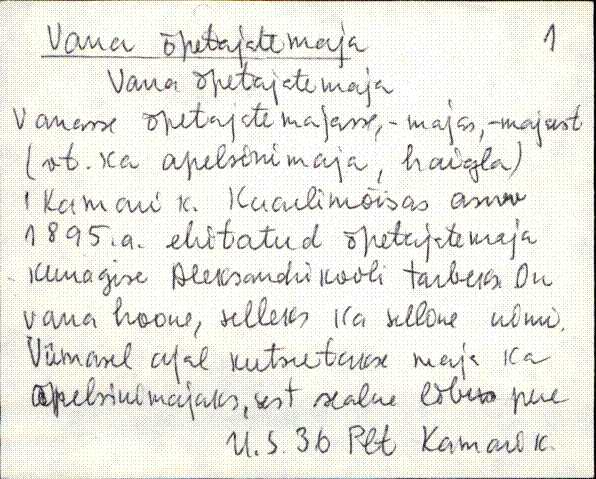 Vana õpetajatemaja 1
Vana õpetajatemaja
Vanasse õpetajatemajasse, -majas, -majast
(vt. ka apelsinimaja, haigla)
1 Kamari k. Kuulimõisas asuv
1895.a. ehitatud õpetajatemaja
kunagise Aleksandrikooli tarbeks On
vana hoone, selleks ka selline nimi.
Viimasel ajal kutsutakse maja ka
apelsinimajaks, sest sealne pere
U.S. 36 Plt Kamari k.